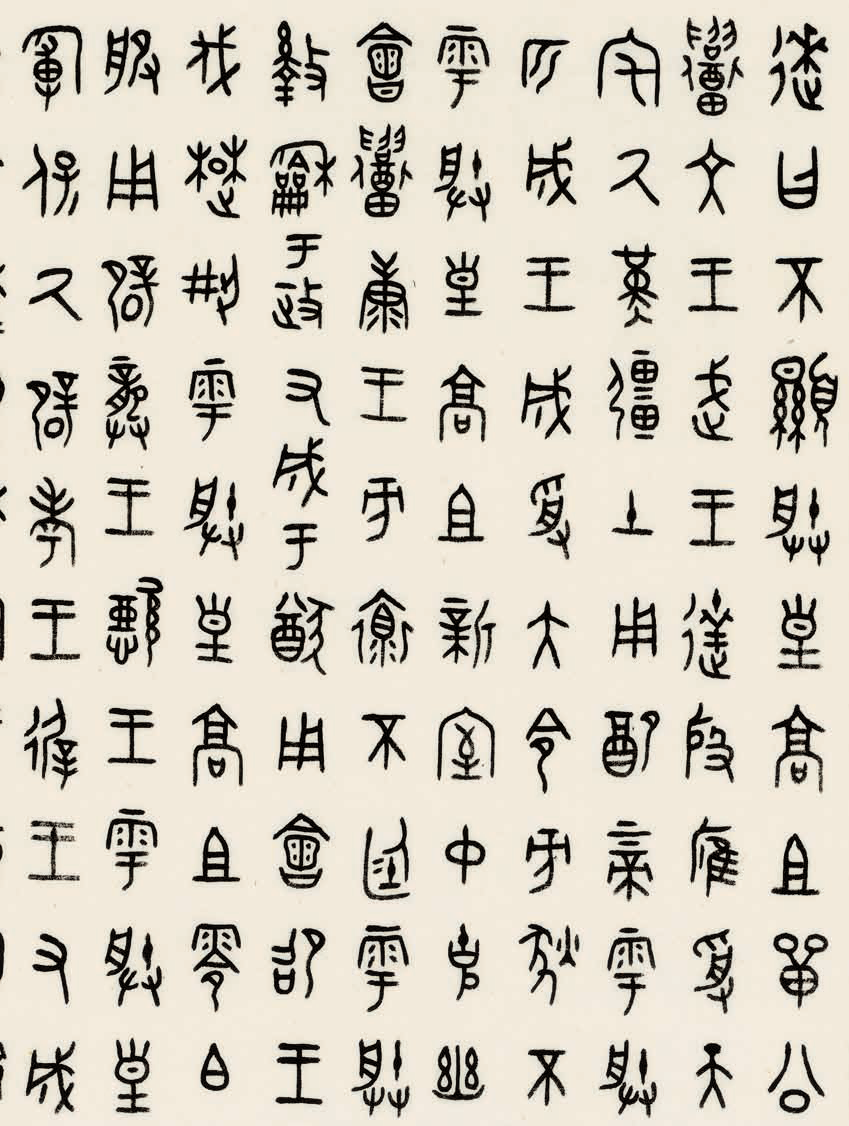 逨曰不顯朕皇高且單公
召文王武王達殷膺受天
宅氒堇彊土用配上帝雩朕
匹成王成受大令方狄不
雩朕皇高且新室中克幽
會召康王方褱不廷雩朕
盭龢于政又成于猷用會邵王
伐楚荊雩朕皇高且零白
服用辟龏王懿王雩朕皇
匍保氒辟孝王夷王又成